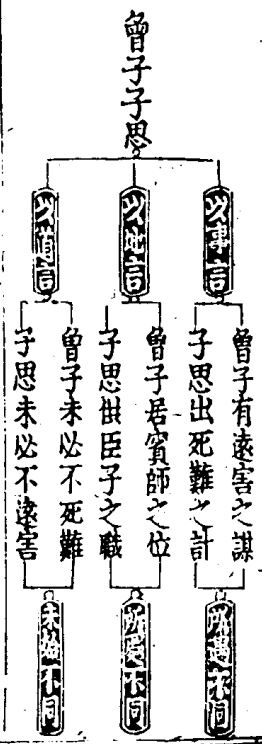 曾子子思
以事言
曾子有遠害之謀
子思出死難之計
所遇不同
以地言
曾子居賓師之位
子思供臣子之職
所處不同
以道言
曾子未必不死難
子思未必不遠害
未始不同